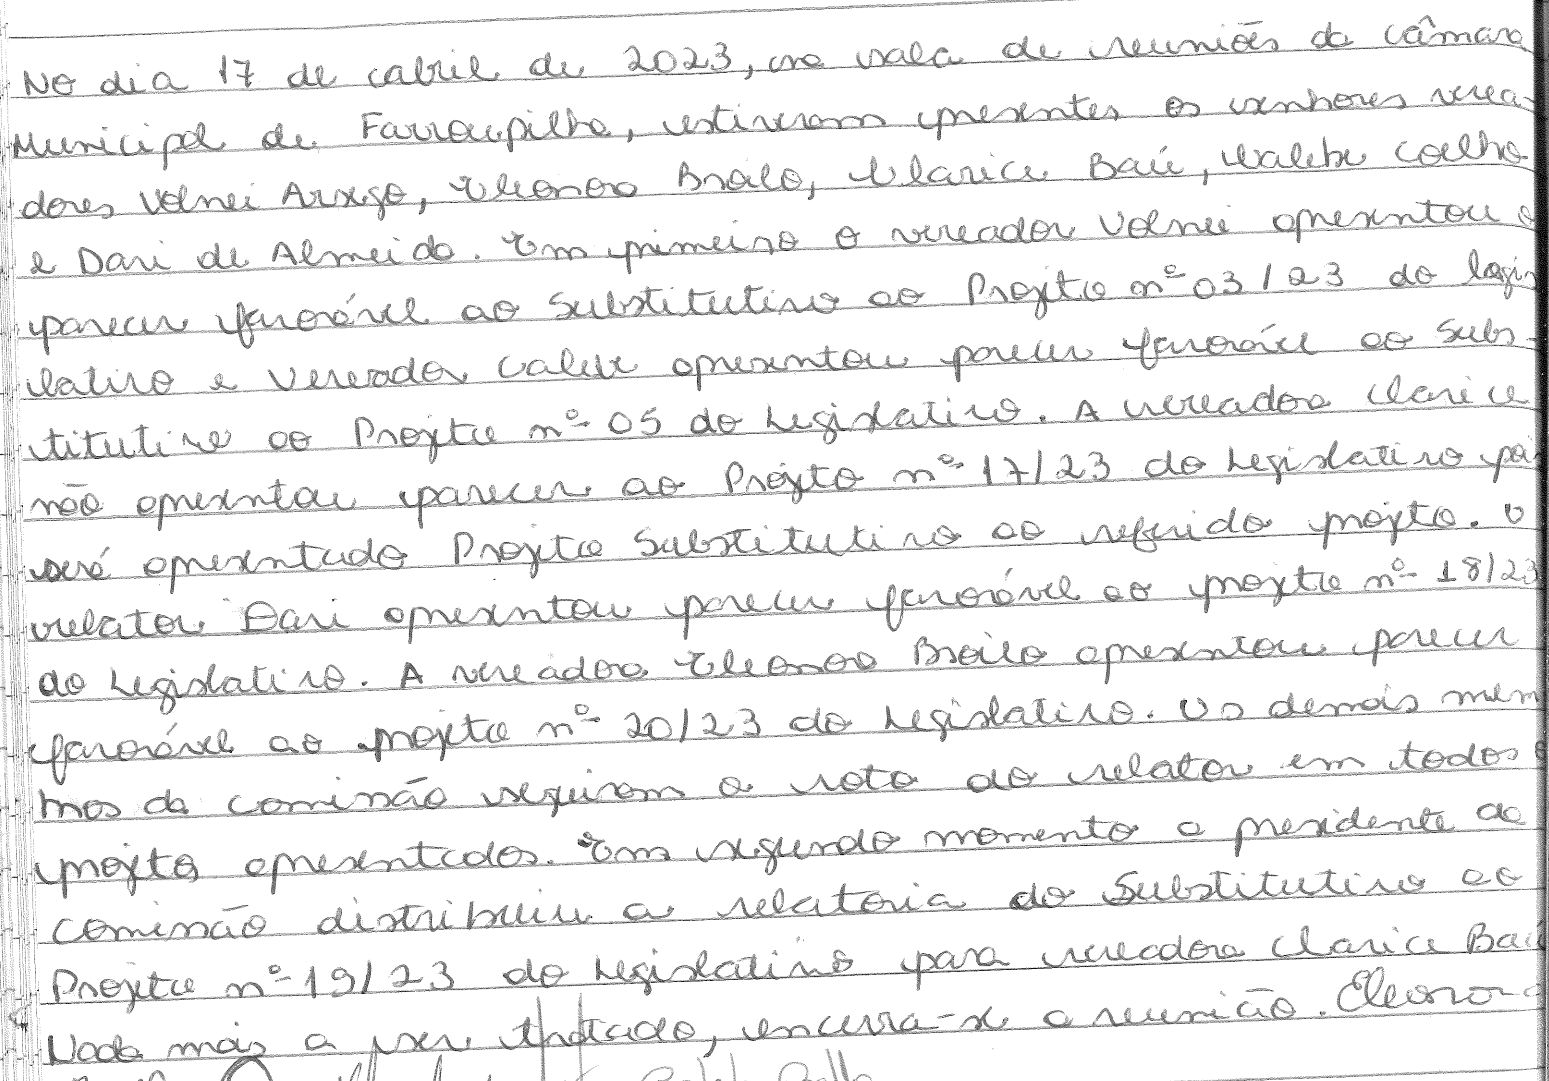 No dia 17 de abril de 2023, na sala de reuniões da câmara
Municipal de Farroupilha, estiveram presentes os senhores verea-
dores Volnei Arsego, Eleonora Broilo, Clarice Baú, Calebe Coelho
e Dari de Almeida. Em primeiro o vereador Volnei apresentou o
parecer favorável ao Substitutivo ao Projeto nº 03/23 do legis
lativo e Vereador Calebe apresentou parecer favorável ao Subs-
titutivo ao Projeto nº 05 do Legislativo. A vereadora Clarice
não apresentou parecer ao Projeto nº 17/23 do Legislativo pois
será apresentado Projeto Substitutivo ao referido projeto. O
relator Dari apresentou parecer favorável ao projeto nº 18/23
do Legislativo. A vereadora Eleonora Broilo apresentou parecer
favorável ao projeto nº 20/23 do Legislativo. Os demais mem
bros da comissão seguiram o voto do relator em todos
projetos apresentados. Em segundo momento o presidente da
comissão distribuiu a relatoria do Substitutivo ao
Projeto nº 19/23 do Legislativo para vereadora Clarice Baú
Nada mais a ser tratado, encerra-se a reunião. Eleonora